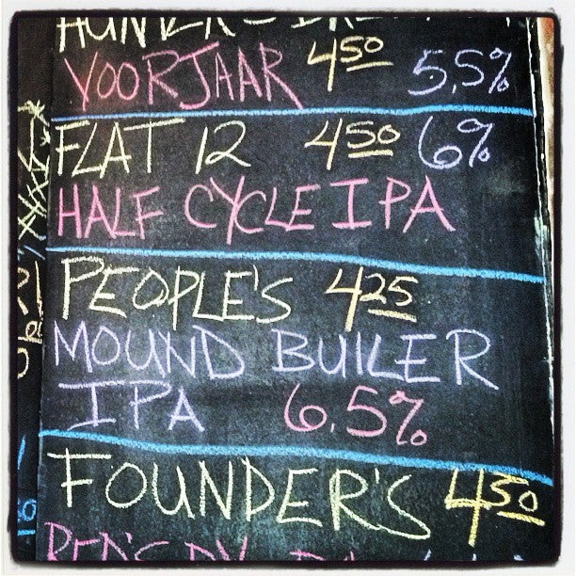 VOORJAAR 4.50 5.5%
FLAT 12 4.50 6%
HALF CYCLE IPA
PEOPLE'S 4.25
MOUND BUILER
IPA 6.5%
FOUNDER'S 4.50